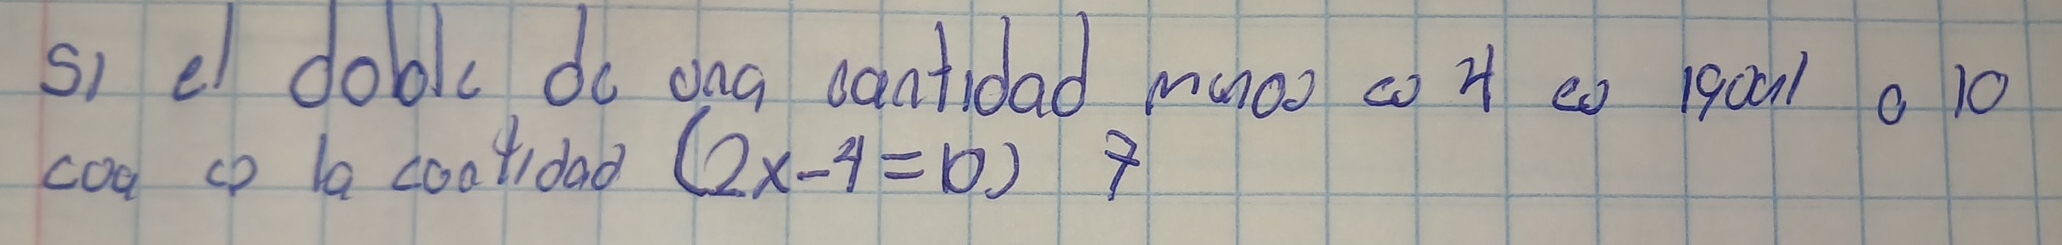 Si el doble de una cantidad menos es 4 es igual a 10
cua es la cantidad (2x-4=10) 7